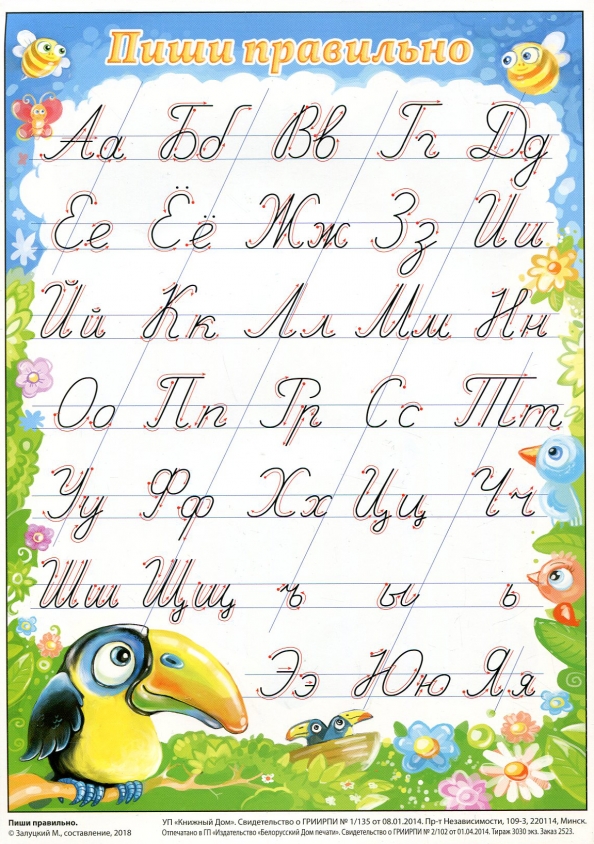 Пиши правильно
Аа Бб Вв Гг Дд
Ее Ёё Жж Зз Ии
Йй Кк Лл Мм Нн
Оо Пп Рр Сс Тт
Уу Фф Хх Цц Чч
Шш Щщ ъ ы ь
Ээ Юю Яя
Пиши правильно.
© Залуцкий М., составление, 2018
УП «Книжный Дом». Свидетельство о ГРИИРПИ № 1/135 от 08.01.2014. Пр-т Независимости, 109-3, 220114, Минск.
Отпечатано в ГП «Издательство «Белорусский Дом печати». Свидетельство о ГРИИРПИ № 2/102 от 01.04.2014. Тираж 3030 экз. Заказ 2523.